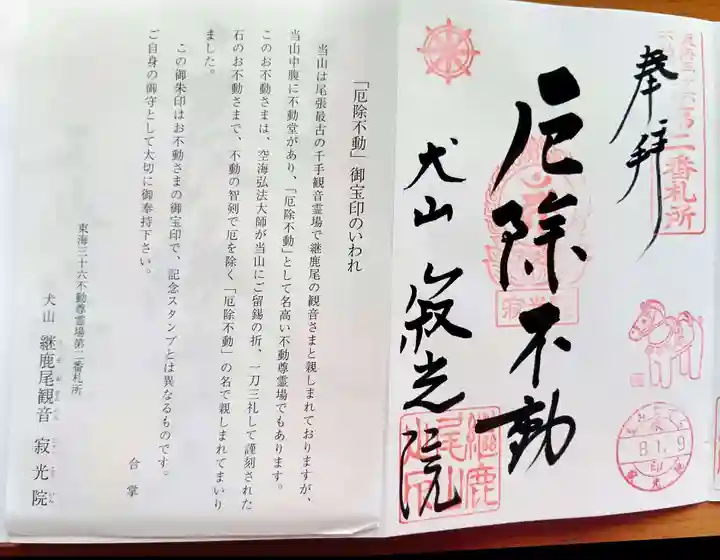 奉拝
厄除不動
犬山 寂光院
第二番札所
寂光院
継鹿
尾山
8.1.9
「厄除不動」御宝印のいわれ
当山は尾張最古の千手観音霊場で継鹿尾の観音さまと親しまれておりますが、
当山中腹に不動堂があり、「厄除不動」として名高い不動尊霊場でもあります。
このお不動さまは、空海弘法大師が当山にご留錫の折、一刀三礼して謹刻された
石のお不動さまで、不動の智剣で厄を除く「厄除不動」の名で親しまれてまいり
ました。
この御朱印はお不動さまの御宝印で、記念スタンプとは異なるものです。
ご自身の御守として大切に御奉持下さい。
合掌
東海三十六不動尊霊場第二番札所
犬山 継鹿尾観音 寂光院